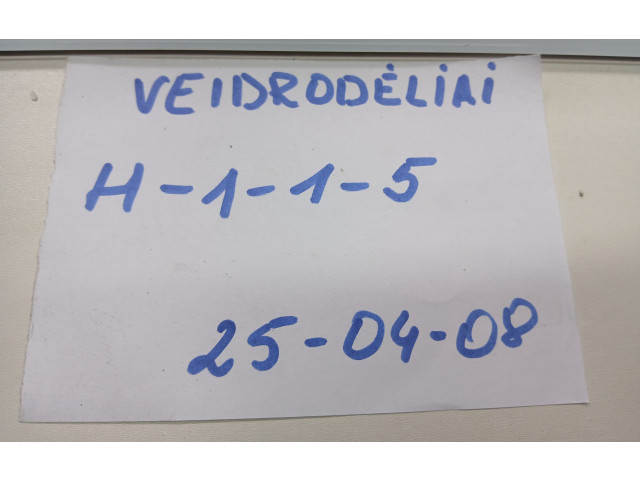 VEIDRODĖLIAI
H-1-1-5
25-04-08